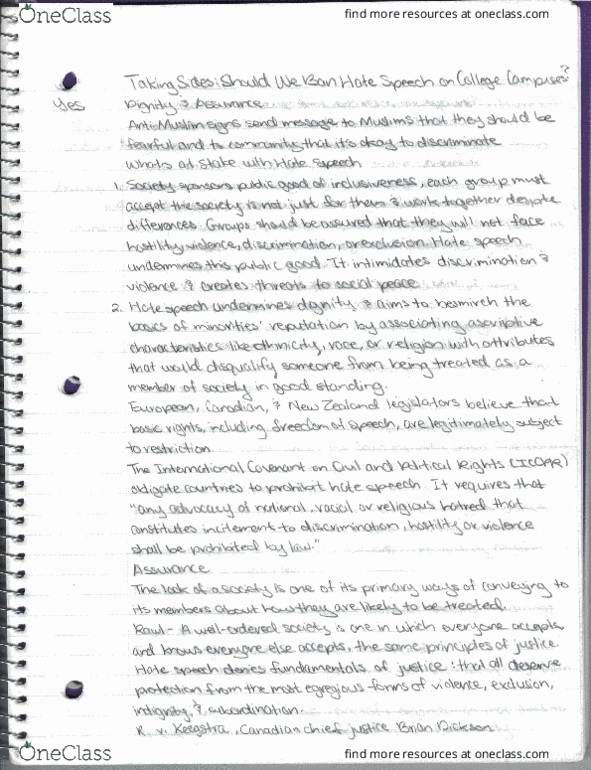 OneClass
find more resources at oneclass.com
Taking Sides: Should We Ban Hate Speech on College Campuses?
Yes
Dignity & Assurance
Anti-Muslim signs send message to Muslims that they should be
fearful and to community that it's okay to discriminate
What's at Stake with Hate Speech
1. Society sponsors public good of inclusiveness, each group must
accept the society is not just for them & works together despite
differences. Groups should be assured that they will not face
hostility, violence, discrimination, or exclusion. Hate speech
undermines this public good. It intimidates discrimination &
violence & creates threats to social peace
2. Hate speech undermines dignity & aims to besmirch the
basics of minorities' reputation by associating ascriptive
characteristics like ethnicity, race, or religion with attributes
that would disqualify someone from being treated as a
member of society in good standing.
European, Canadian, & New Zealand legislators believe that
basic rights, including freedom of speech, are legitimately subject
to restriction.
The International Covenant on Civil and Political Rights
obligate countries to prohibit hate speech. It requires that
"any advocacy of national, racial or religious hatred that
constitutes incitement to discrimination, hostility or violence
shall be prohibited by law."
Assurance
The look of a society is one of its primary ways of conveying to
its members about how they are likely to be treated.
Rawl - A well-ordered society is one in which everyone accepts,
and knows everyone else accepts, the same principles of justice.
Hate speech denies fundamentals of justice: that all deserve
protection from the most egregious forms of violence, exclusion,
indignity, & subordination.
R. v. Keegstra, Canadian chief justice Brian Dickson
OneClass
find more resources at oneclass.com